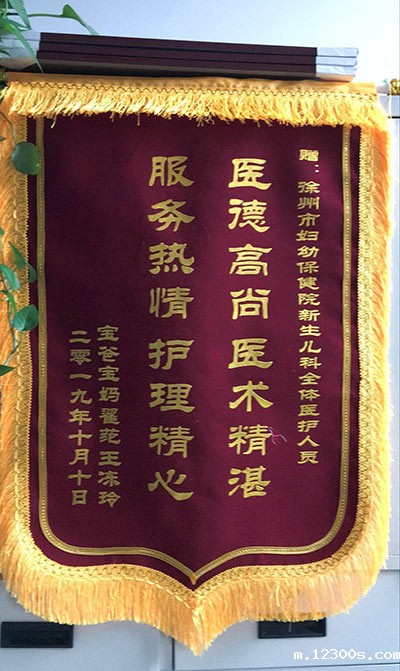 赠：徐州市妇幼保健院新生儿科全体医护人员
医德高尚 医术精湛
服务热情 护理精心
宝爸宝妈翟 王冻玲
二零一九年十月十日
m.12300s.com